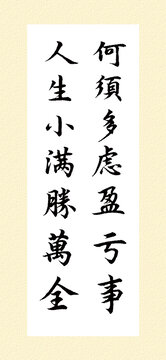 何須多虑盈亏事
人生小满勝萬全